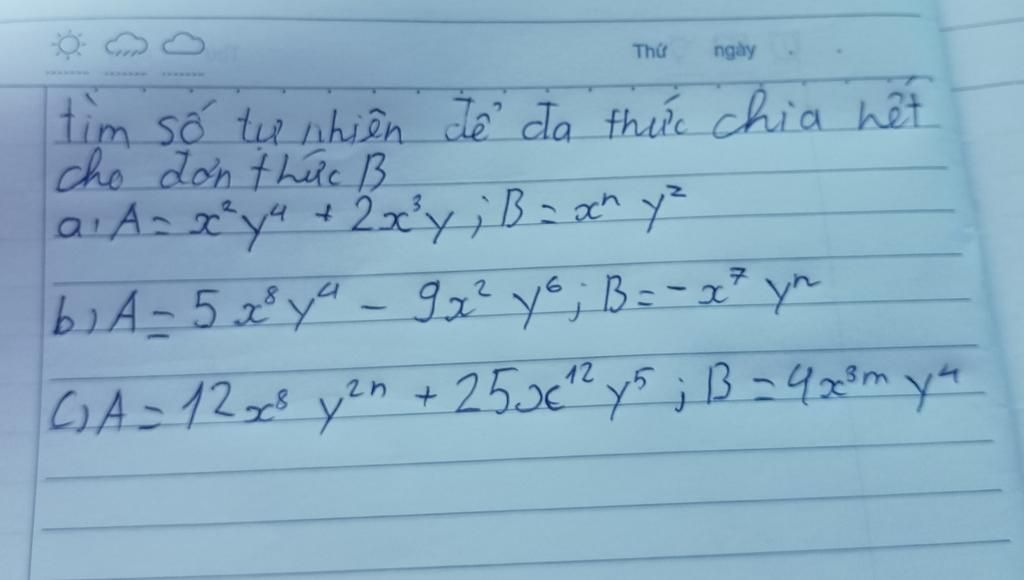 Thứ ngày
tìm số tự nhiên để đa thức chia hết
cho đơn thức B
a, A = x²y⁴ + 2x³y ; B = xⁿ y²
b, A = 5x⁸y⁴ - 9x² y⁶ ; B = -x⁷ yⁿ
c, A = 12x⁸ y²ⁿ + 25x¹² y⁵ ; B = 4x³ᵐ y⁴